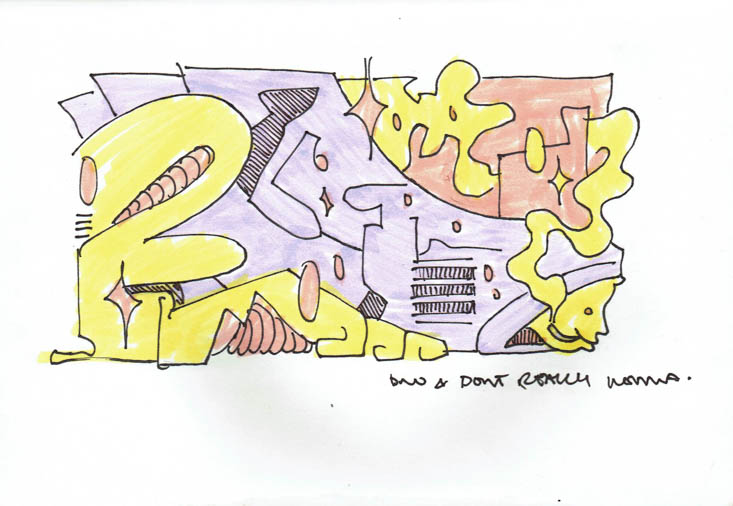 & DONT REALLY WANNA.